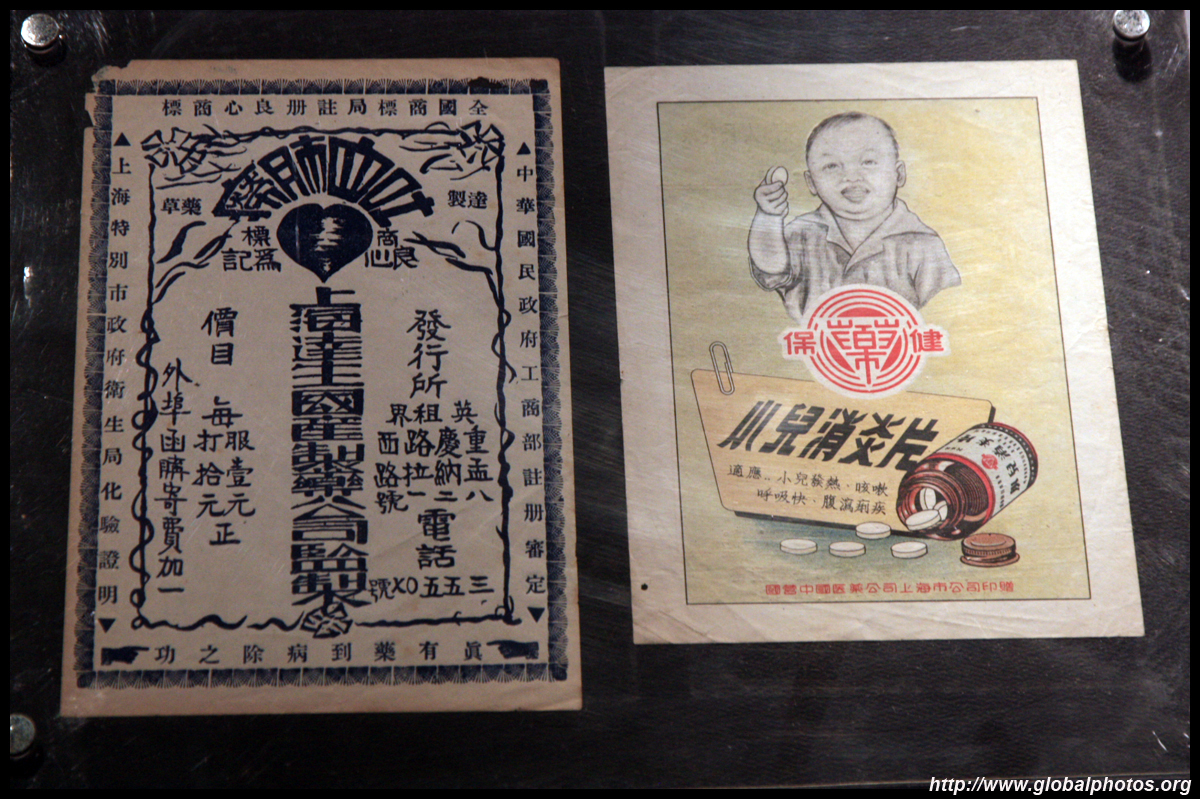 全國商標局註册良心商標
▲中華國民政府工商部註册審定▼
▲上海特別市政府衛生局化驗證明▼
吐血肺癆
達製
藥草
商標
良心
爲記
發行所
英租界
重慶路西
孟納拉路
八二一號
電話
三五五XO號
上海達生國產製藥公司監製
價目
每服壹元
打拾元正
外埠函購寄費加一
眞有藥到病除之功
保藥健
小兒消炎片
適應..小兒發熱·咳嗽
呼吸快·腹瀉痢疾
國營中國医藥公司上海市公司印贈
http://www.globalphotos.org